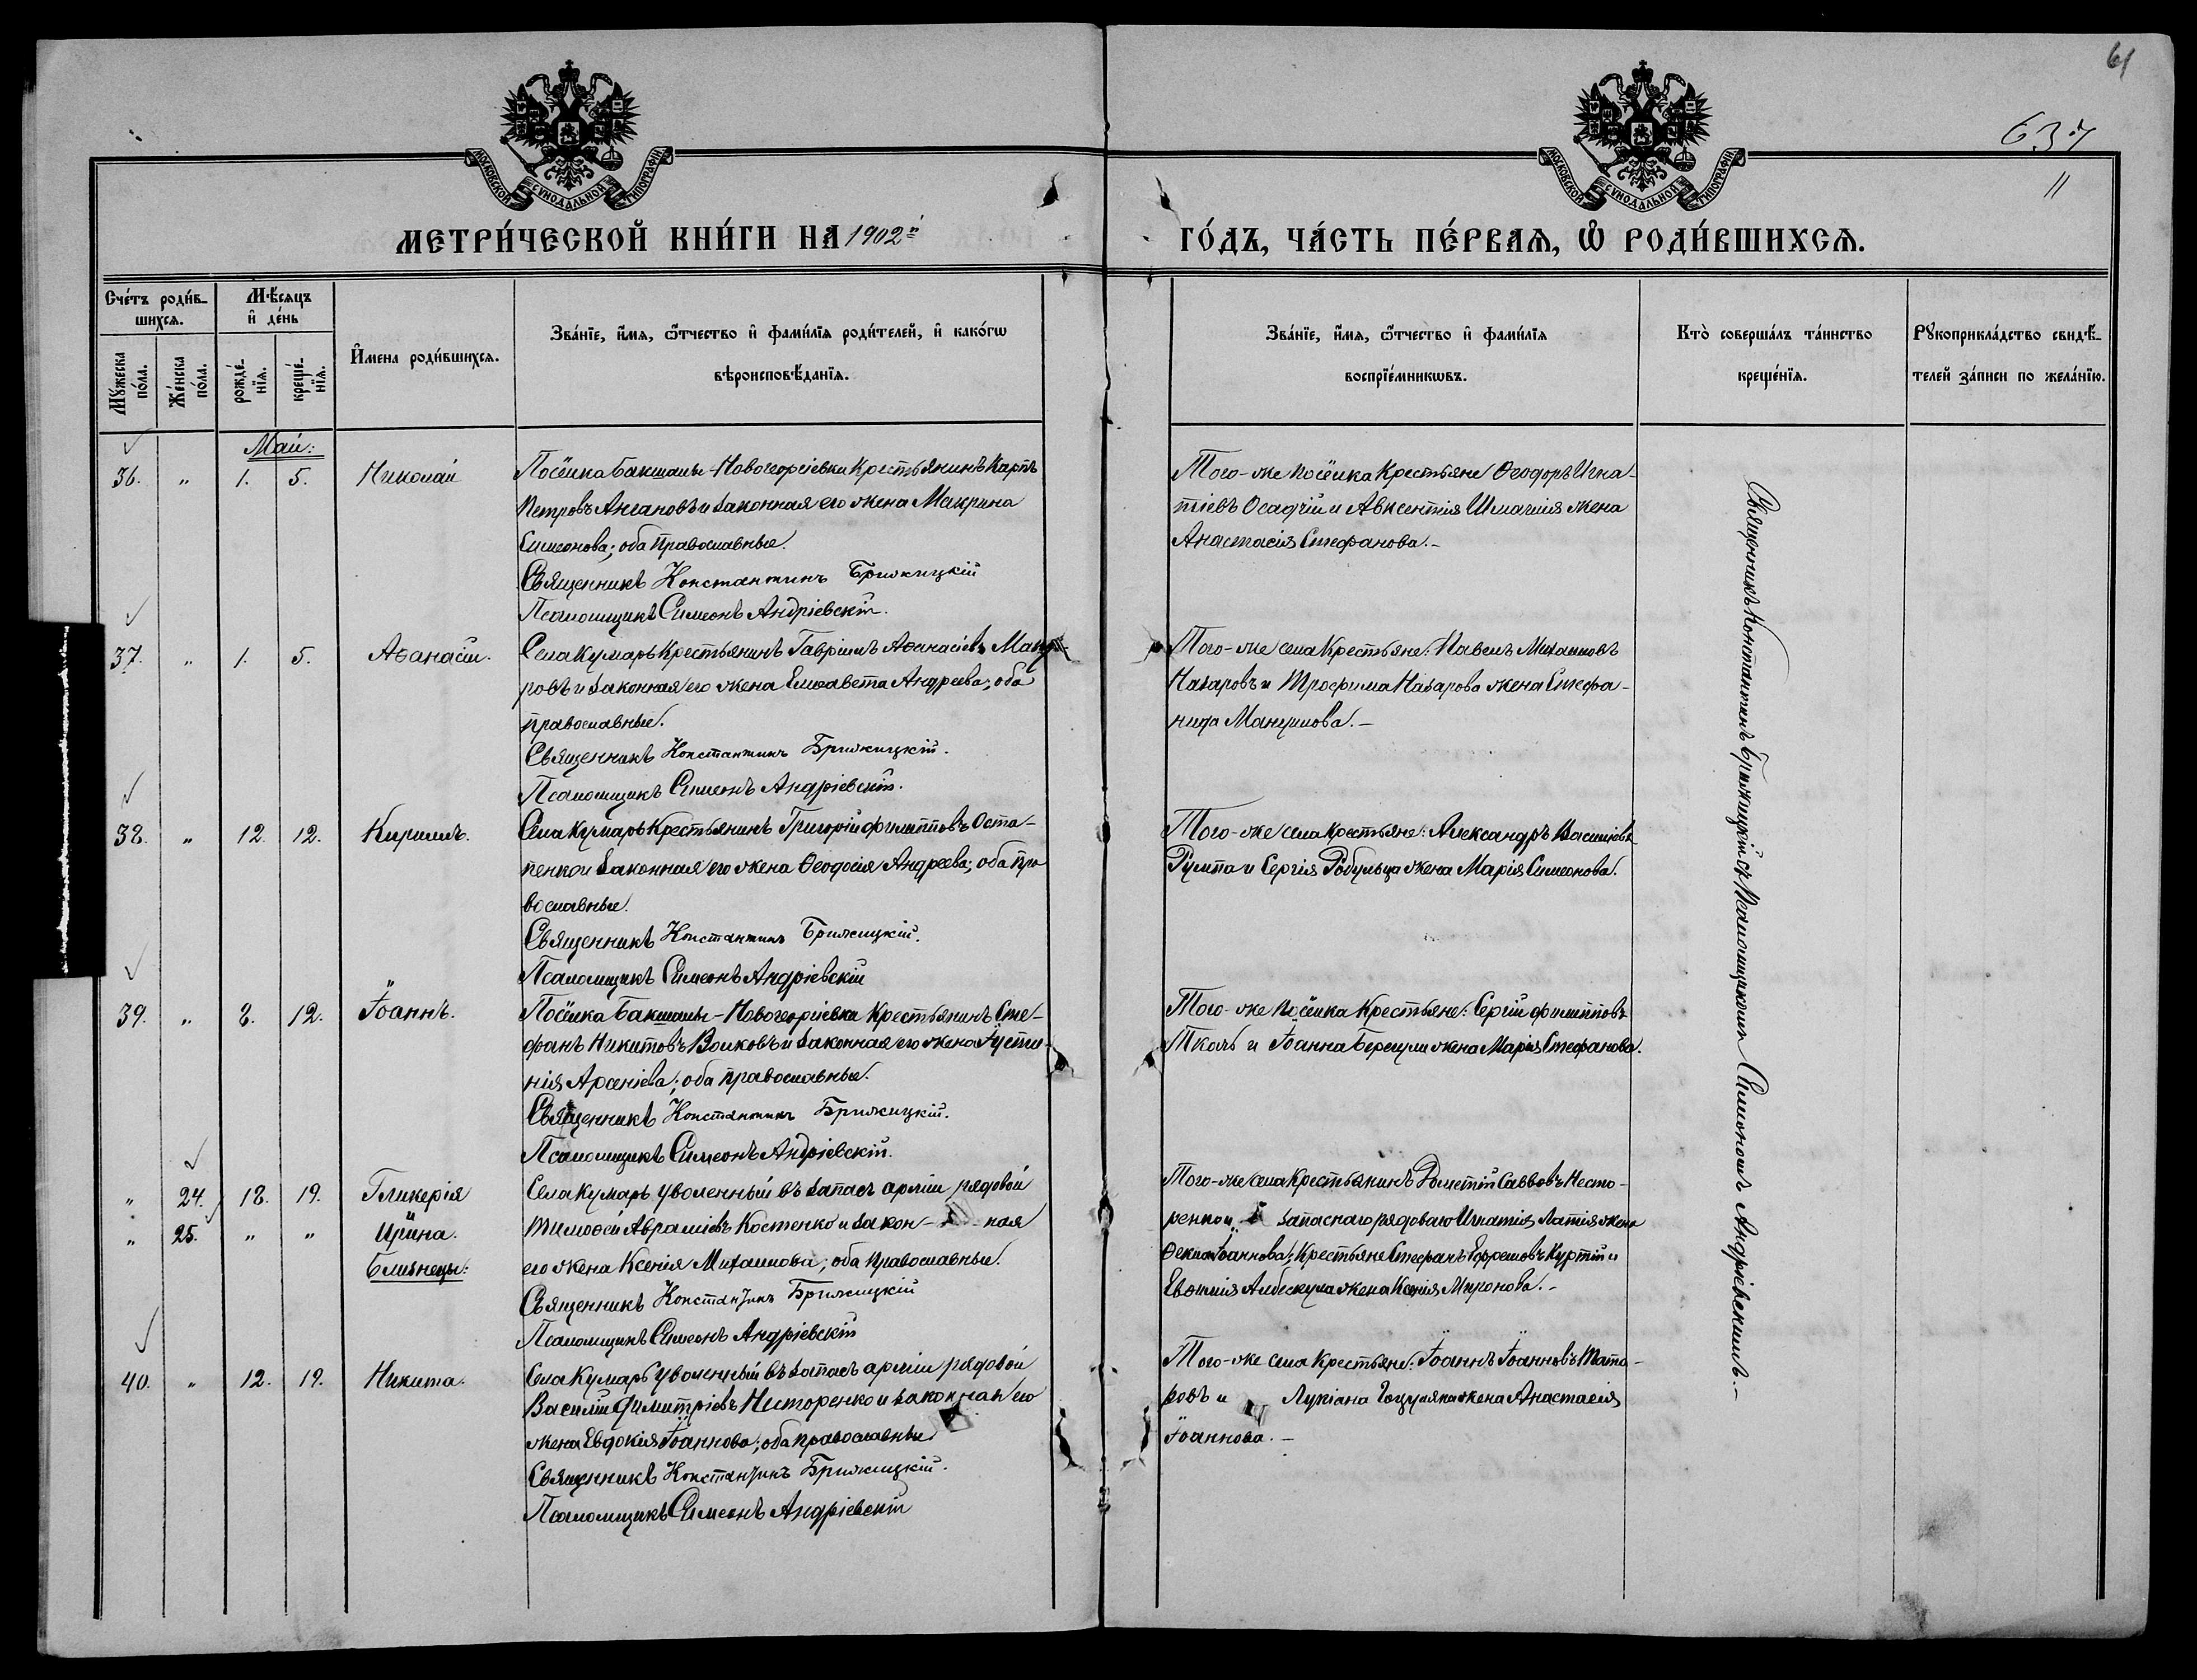 61
637
11
МОСКОВСКОЙ СѴНОДАЛЬНОЙ ТИПОГРАФІИ
МОСКОВСКОЙ СѴНОДАЛЬНОЙ ТИПОГРАФІИ
МЕТРИ́ЧЕСКОЙ КНИ́ГИ НА 1902й
ГО́ДЪ, ЧА́СТЬ ПЕ́РВАѦ, Ѿ РОДИ́ВШИХСѦ.
Сче́тъ роди́в-
шихсѧ.
Мꙋ́жеска по́ла.
Же́нска по́ла.
Мѣ́сѧцъ
и҆ де́нь
рожде́-
нїѧ.
креще́-
нїѧ.
И҆́мена роди́вшихсѧ.
Зва́нїе, и҆́мѧ, ѻ҆́тчество и҆ фами́лїѧ роди́телей, и҆ како́гѡ
вѣроисповѣ́данїѧ.
Зва́нїе, и҆́мѧ, ѻ҆́тчество и҆ фами́лїѧ
воспрїе́мникѡвъ.
Кто̀ соверша́лъ та́инство
креще́нїѧ.
Рꙋкоприкла́дство свидѣ́-
телей за́писи по жела́нїю.
Май:
36. " 1. 5. Николай
Посёлка Бакшалы-Новогеоргіевки Крестьянинъ Карпъ
Петровъ и законная его жена Макрина
Симеонова; оба Православные.
Священникъ Константинъ Брижицкій
Псаломщикъ Симеонъ Андріевскій.
Того-же посёлка Крестьяне Ѳеодоръ Игна-
тіевъ Осадчій и Авксентія жена
Анастасія Стефанова.-
37. " 1. 5. Аѳанасій.
Села Кумаръ Крестьянинъ Гавріилъ Аѳанасіевъ
ровъ и законная его жена Елисавета Андреева; оба
православные.
Священникъ Константинъ Брижицкій.
Псаломщикъ Симеонъ Андріевскій.
Того-же села Крестьяне: Павелъ Михаиловъ
Назаровъ и Трофима Назарова жена Стефа-
нида Мануилова.-
38. " 12. 12. Кириллъ.
Села Кумаръ Крестьянинъ Григорій Филипповъ Оста-
пенко и законная его жена Ѳеодосія Андреева; оба пра-
вославные.
Священникъ Константинъ Брижицкій.
Псаломщикъ Симеонъ Андріевскій
Того-же села Крестьяне: Александръ Василіевъ
и Сергія жена Марія Симеонова.
39. " 8. 12. Іоаннъ.
Посёлка Бакшалы-Новогеоргіевки Крестьянинъ Сте-
фанъ Никитовъ Волковъ и законная его жена Іусти-
нія Арсеніева; оба православные.
Священникъ Константинъ Брижицкій.
Псаломщикъ Симеонъ Андріевскій.
Того-же посёлка Крестьяне: Сергій Филипповъ
Ткачъ и Іоанна жена Марія Стефанова.
" 24. 18. 19. Гликерія
и
" 25. " " Ирина.
Близнецы:
Села Кумаръ уволенный въ запасъ арміи рядовой
Тимоѳей Авраміевъ Костенко и закон- -ная
его жена Ксенія Михаилова; оба православные.
Священникъ Константинъ Брижицкій
Псаломщикъ Симеонъ Андріевскій
Того-же села Крестьянинъ Саввовъ Несто-
ренко и запаснаго рядоваго Игнатія жена
Іоаннова; Крестьяне Стефанъ Ефремовъ и
Евѳимія жена Ксенія Миронова.-
40. " 12. 19. Никита.
Села Кумаръ уволенный въ запасъ арміи рядовой
Василій Димитріевъ Несторенко и законная его
жена Евдокія Іоаннова; оба православные
Священникъ Константинъ Брижицкій.
Псаломщикъ Симеонъ Андріевскій
Того-же села Крестьяне: Іоаннъ Іоанновъ Тата-
ровъ и Лукіана жена Анастасія
Іоаннова.-
Священникъ Константинъ Брижицкій съ Псаломщикомъ Симеономъ Андріевскимъ.-